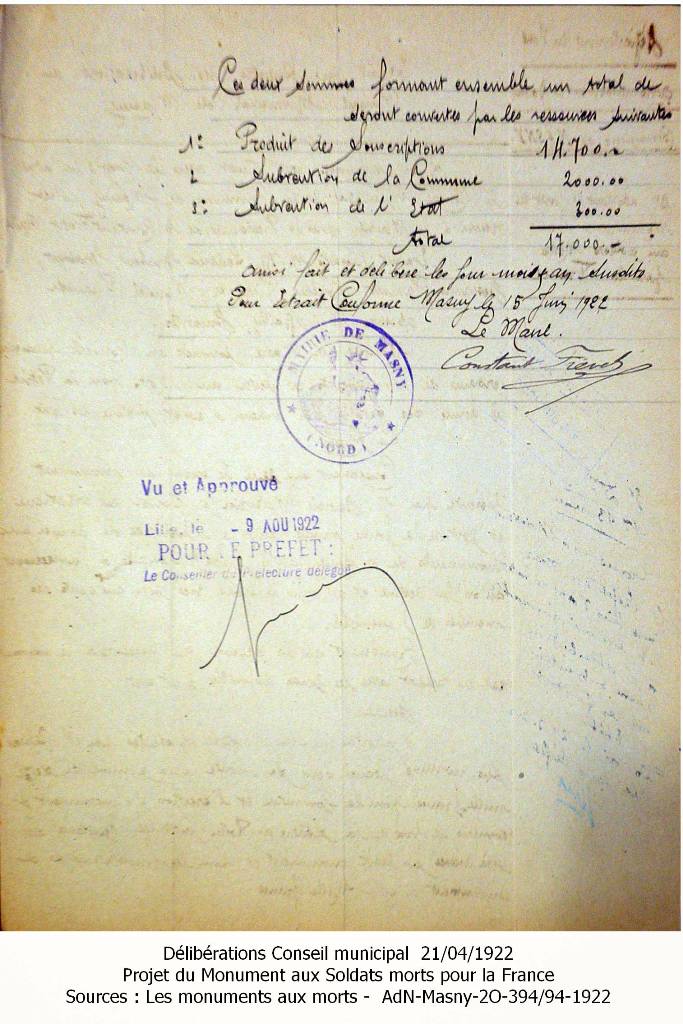 Ces deux sommes formant ensemble un total de
seront couvertes par les ressources suivantes
1º Produit des Souscriptions 14.700.-
2 Subvention de la Commune 2000.00
3º Subvention de l'Etat 300.00
total 17.000.-
ainsi fait et délibéré les jour mois et an susdits
Pour Extrait Conforme Masny le 15 Juin 1922
Le Maire.
Constant
MAIRIE DE MASNY
(NORD)
Vu et Approuvé
Lille, le - 9 AOU 1922
POUR LE PREFET :
Le Conseiller de Préfecture délégué
Délibérations Conseil municipal 21/04/1922
Projet du Monument aux Soldats morts pour la France
Sources : Les monuments aux morts - AdN-Masny-2O-394/94-1922